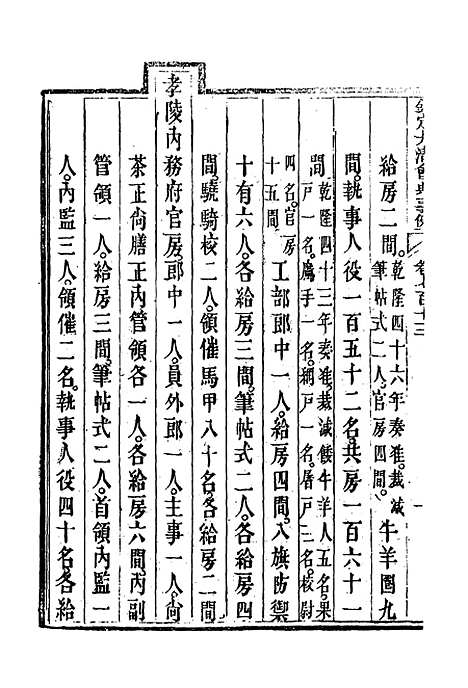 欽定大清會典事例 卷七百十三
給房二間。乾隆四十六年奏准。裁減
筆帖式二人。官房四間。牛羊圈九
間。執事人役一百五十二名。共房一百六十一
間乾隆四十三年奏准。裁減餧牛羊人五名。果
戶一名。鷹手一名。網戶一名。屠戶三名。校尉
四名。官房
十五間。工部郎中一人。給房四間。八旗防禦
十有六人。各給房三間。筆帖式二人。各給房四
間。驍騎校二人。領催馬甲八十名。各給房二間
孝陵內務府官房。郎中一人。員外郎一人。主事一人。尚
茶正尚膳正內管領各一人。各給房六間。內副
管領一人。給房三間。筆帖式二人。首領內監一
人。內監三人。領催二名。執事人役四十名。各給